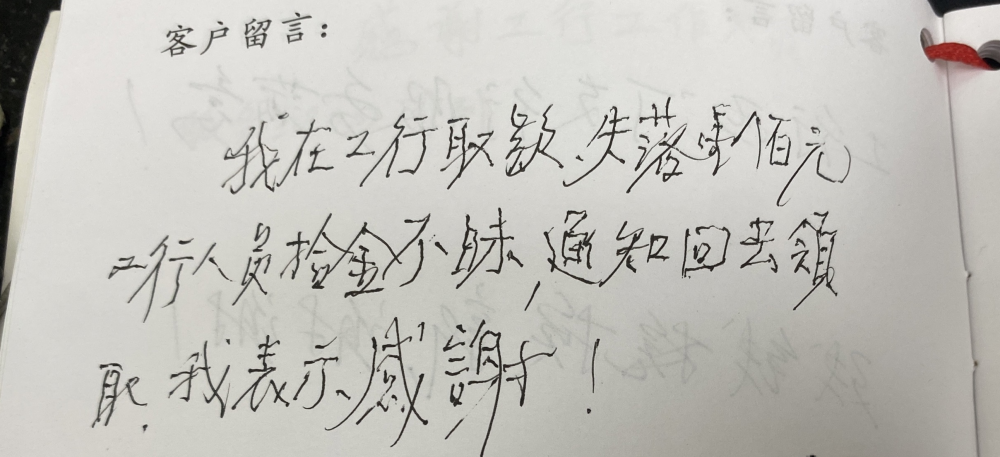 客户留言：
我在工行取款、失落佰元
工行人员捡金不昧，通知回去領
取．我表示感謝！